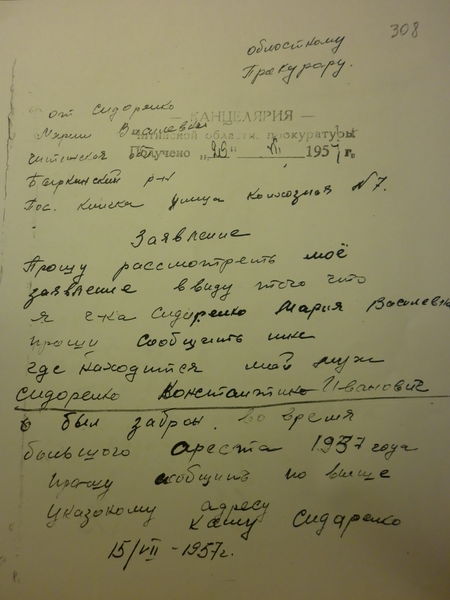 308
областному
Прокурору.
от Сидоренко
— КАНЦЕЛЯРИЯ —
Марии Василевны
Читинской области. прокуратуры
читенская об
Получено „ " VII 1957 г.
Балкинский р-н
Пос. улица Колхозная N 7.
Заявление
Прошу рассмотреть моё
заявление ввиду того что
я г-ка Сидоренко Мария Василевна
прошу сообщить мне
где находится мой муж
Сидоренко Константино Иванович
был забран. во время
большого ареста 1937 года
прошу сообщить по выше
указокому адресу
Сидаренко
15/VII - 1957г.